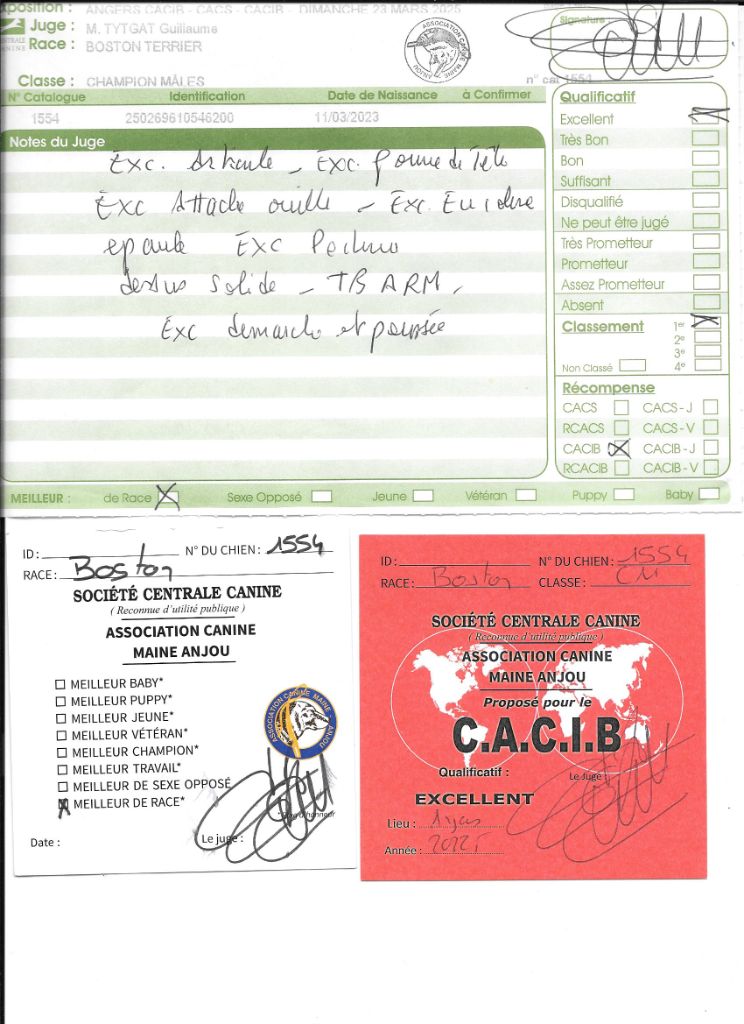 xposition : ANGERS CACIB - CACS - CACIB - DIMANCHE 23 MARS 2025
Juge : M. TYTGAT Guillaume
Race : BOSTON TERRIER
Classe : CHAMPION MÂLES
n° cat 1554
Signature :
ASSOCIATION CANINE MAINE ANJOU
N° Catalogue Identification Date de Naissance à Confirmer
1554 250269610546200 11/03/2023
Notes du Juge
Exc. - Exc. forme de Tête
Exc Attache oreille - Exc.
epaule Exc
dessus solide - TB ARM.
Exc demarche et poussée
Qualificatif
Excellent
Très Bon
Bon
Suffisant
Disqualifié
Ne peut être jugé
Très Prometteur
Prometteur
Assez Prometteur
Absent
Classement 1er
2e
3e
Non Classé 4e
Récompense
CACS CACS - J
RCACS CACS - V
CACIB CACIB - J
RCACIB CACIB - V
MEILLEUR : de Race Sexe Opposé Jeune Vétéran Puppy Baby
ID : N° DU CHIEN : 1554
RACE : Boston
SOCIÉTÉ CENTRALE CANINE
( Reconnue d'utilité publique )
ASSOCIATION CANINE
MAINE ANJOU
MEILLEUR BABY*
MEILLEUR PUPPY*
MEILLEUR JEUNE*
MEILLEUR VÉTÉRAN*
MEILLEUR CHAMPION*
MEILLEUR TRAVAIL*
MEILLEUR DE SEXE OPPOSÉ
MEILLEUR DE RACE*
ASSOCIATION CANINE MAINE ANJOU
d'honneur
Date : Le juge :
ID : N° DU CHIEN : 1554
RACE : Boston CLASSE : CM
SOCIÉTÉ CENTRALE CANINE
( Reconnue d'utilité publique )
ASSOCIATION CANINE
MAINE ANJOU
Proposé pour le
C.A.C.I.B
Qualificatif : Le Juge :
EXCELLENT
Lieu :
Année : 2025